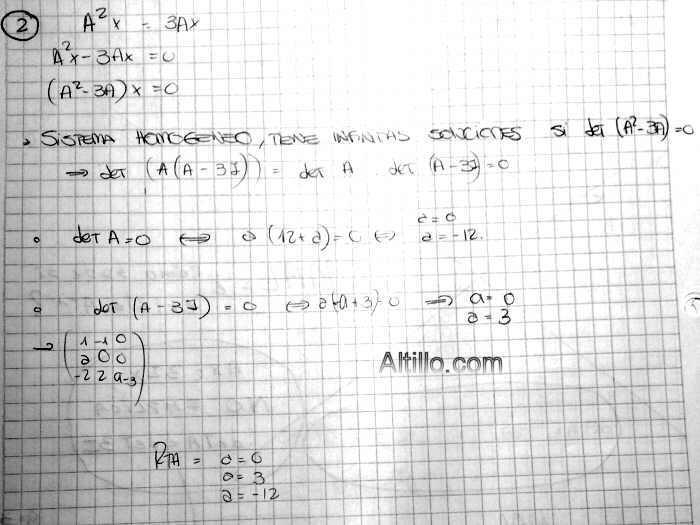 2 A²x = 3Ax
A²x - 3Ax = 0
(A² - 3A) x = 0
→ SISTEMA HOMOGENEO, TIENE INFINITAS SOLUCIONES si det (A² - 3A) = 0
⇒ det (A (A - 3I)) = det A det (A - 3I) = 0
a = 0
• det A = 0 ⇔ a (12 + a) = 0 ⇔ a = -12.
• det (A - 3I) = 0 ⇔ a (-a + 3) = 0 ⇒ a = 0
a = 3
→ ( 1 -1 0
a 0 0
-2 2 a-3 )
Altillo.com
RTA = a = 0
a = 3
a = -12